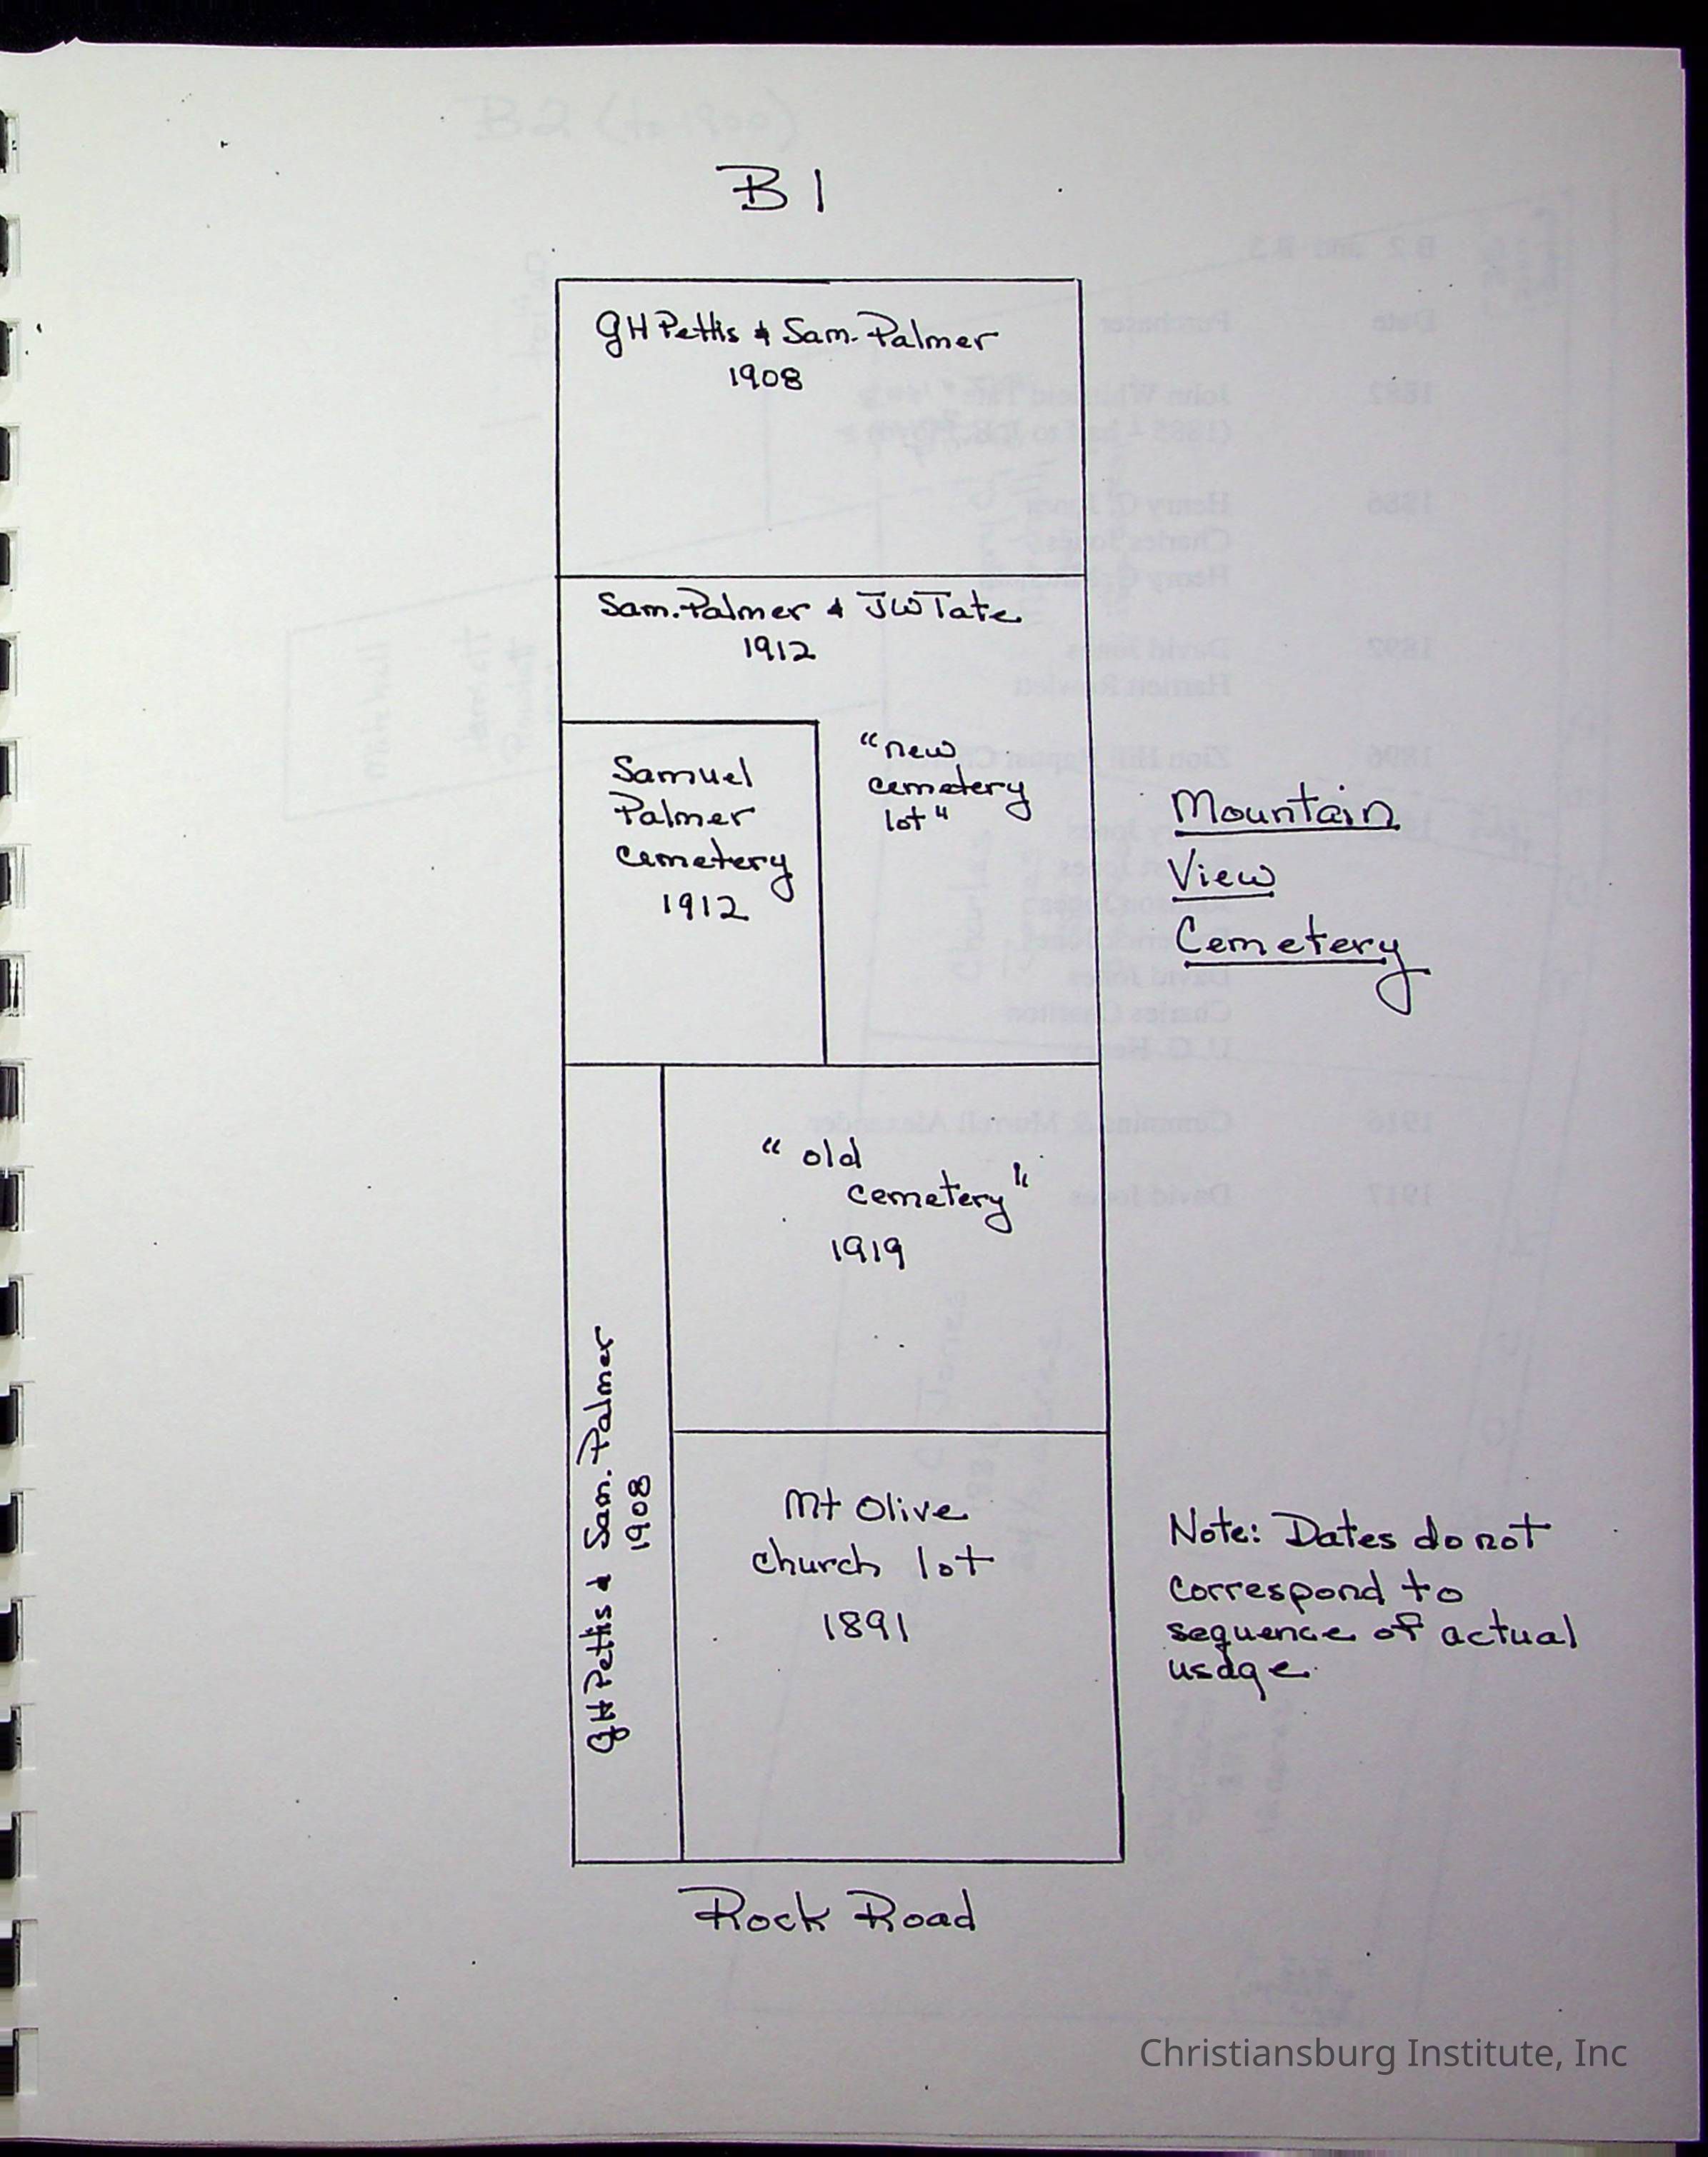 B1
GH Pettis & Sam. Palmer
1908
Sam. Palmer & JW Tate
1912
Samuel
Palmer
cemetery
1912
"new
cemetery
lot"
Mountain
View
Cemetery
"old
cemetery"
1919
GH Pettis & Sam. Palmer
1908
Mt Olive
church lot
1891
Note: Dates do not
correspond to
sequence of actual
usage.
Rock Road
Christiansburg Institute, Inc